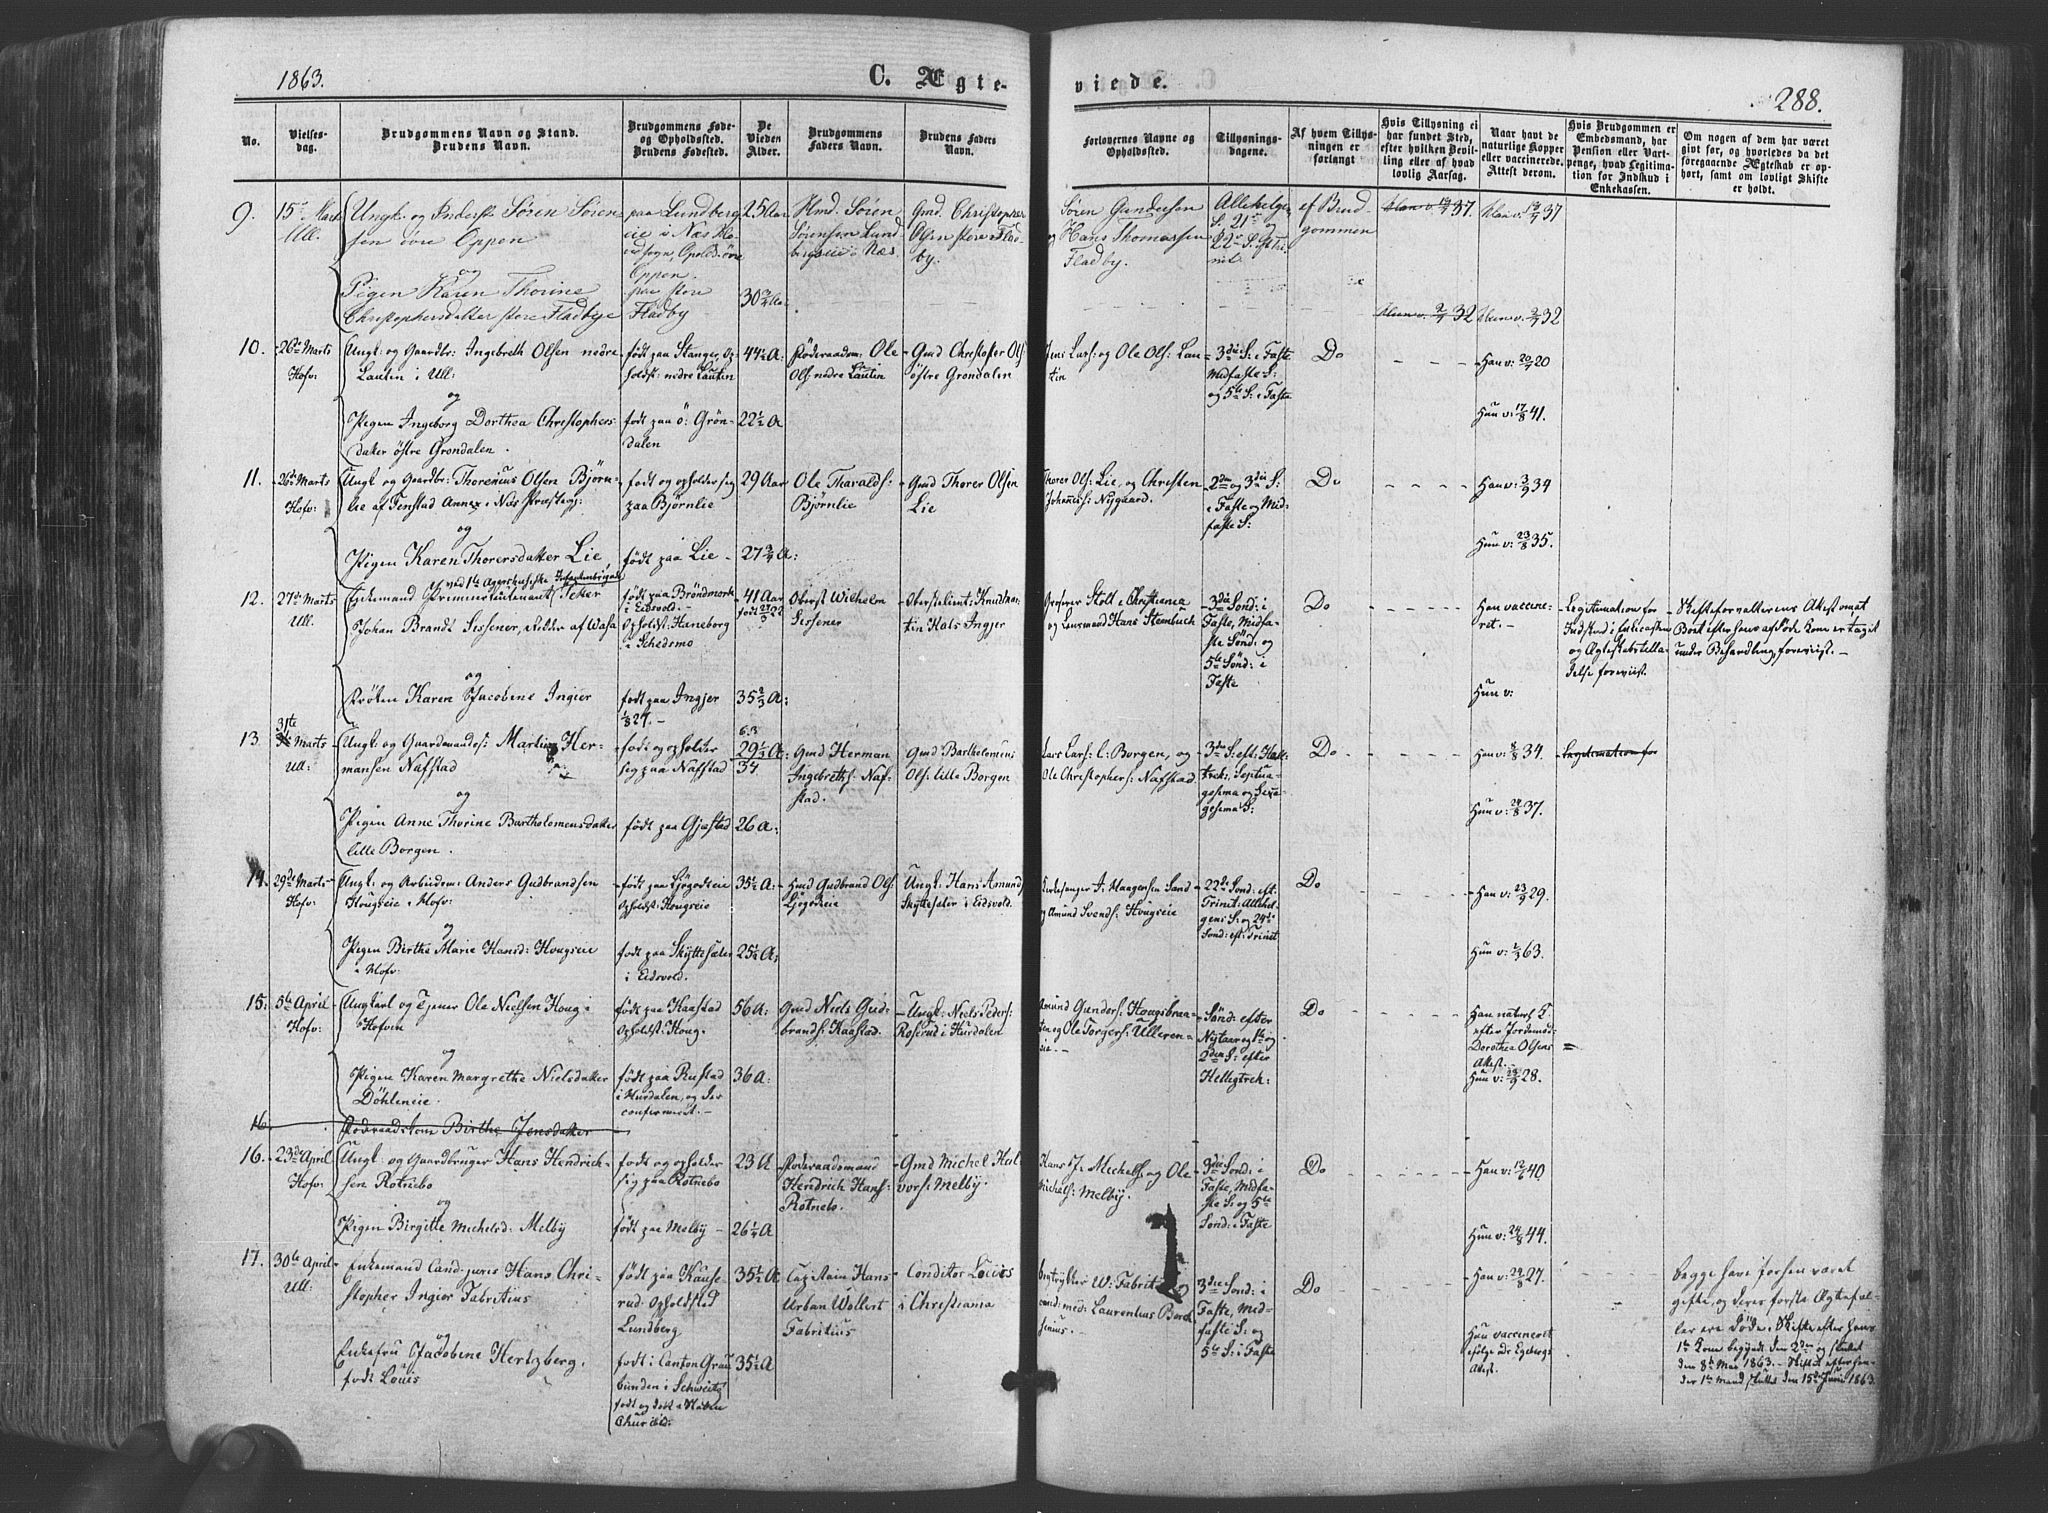 1863.
C. Ægteviede.
288.
No.
Vielsesdag.
Brudgommens Navn og Stand.
Brudens Navn.
Brudgommens Føde-
og Opholdssted.
Brudens Fødested.
De
Viedes
Alder.
Brudgommens
Faders Navn.
Brudens Faders
Navn.
Forlovernes Navne og
Opholdssted.
Tillysnings-
dagene.
Af hvem Tillys-
ningen er
forlangt
Hvis Tillysning ei
har fundet Sted,
efter hvilken Bevil-
ling eller af hvad
lovlig Aarsag.
Naar havt de
naturlige Kopper
eller vaccinerede.
Attest derom.
Hvis Brudgommen er
Embedsmand, har
Pension eller Vart-
penge, hvad Legitima-
tion for Indskud i
Enkekassen.
Om nogen af dem har været
givt før, og hvorledes da det
foregaaende Ægteskab er op-
hørt, samt om lovligt Skifte
er holdt.
9.
15de Marts
Ull.
Ungk. og Inderst Søren Søren-
sen øvre Oppen
og
Pigen Karen Thorine
Christophersdatter store Fladbye
paa Lundberg
eie i Næs
Oppen.
paa store
Fladby
25 Aar
30 3/4 Aar
Hmd. Søren
Sørensen Lund-
bergseie i Næs.
Gmd. Christopher
Olsen store Flad-
by.
Søren Gundersen
og Hans Thomassen
Fladby.
Allehelge
S. 21de og
22de S. efter
Trinit.
af Brud-
gommen
37
32
10.
26de Marts
Hofv:
Ungk: og Gaardbr: Ingebreth Olsen nedre
Lautin i Ull:
og
Pigen Ingeborg Dorthea Christophers-
datter østre Grøndalen.
født paa Stanger, Op-
holdst: nedre Lautin
født paa ö: Grön-
dalen
44 1/2 A:
22 1/2 A
Föderaadsm: Ole
Ols: nedre Lautin
Gmd Christoffer Ols:
østre Grøndalen
Jens Lars: og Ole Ols: Lau-
tin
3die S: i Faste
Midfaste S:
og 5te S: i Faste
Do
Han v: 20/7 20
Hun v: 17/8 41.
11.
26de Marts
Hofv:
Ungk: og Gaardbr: Thorenius Olsen Bjørn-
lie af Fenstad Annex i Næs Præstegj:
og
Pigen Karen Thorersdatter Lie,
født og opholder sig
paa Bjørnlie
født paa Lie
29 Aar
27 3/4 A:
Ole Tharalds:
Bjørnlie
Gmd Thorer Olsen
Lie
Thorer Ols: Lie, og Christen
Johannes: Nygaard.
2den og 3die S:
i Faste og Mid-
faste S:
Do
Han v: 3/9 34
Hun v: 23/8 35.
12.
27de Marts
Ull.
ved 1te Agershusiske Infanteribrigade
Enkemand Premierlieutenant
Johan Brandt Sissener, Ridder af Wasa
og
Frøken Karen Jacobine Ingier
født paa Brøndmork
i Eidsvold.
Opholdst: Haneborg
i Skedsmo
født paa Ingjer
1/8 27.
41 Aar
født 27/3 22
35 2/3 A:
Oberst Wilhelm
Sissener
Oberstelieut: Knud Mar-
tin Hals Ingjer
Stoltz Christiania
og Lensmand Hans Stenbuch
3die Sönd: i
Faste, Midfa-
ste Sönd: og
5te Sönd: i
Faste
Do
Han vaccine-
ret.
Hun v:
Legitimation for
Indskud i Enkecassen
og Ægteskabstilla-
delse foreviist.
Skifteforvalterens Attest om at
Boet efter hans afdøde Kone er taget
under Behandling, foreviist.
13.
31te
Marts
Ull:
Ungk: og Gaardmands: Martin Her-
mansen Nafstad
og
Pigen Anne Thorine Bartholomeusdatter
lille Borgen.
født og opholder
sig paa Nafstad
født paa Gjestad
63
29 1/3 A:
34
26 A:
Gmd Herman
Ingebreths: Naf-
stad.
Gmd Bartholomeus
Ols: lille Borgen
Lars Lars: l: Borgen, og
Ole Christophers: Nafstad
3die S: eft: Hell:
trek: Septua-
gesima og Sexa-
gesima S:
Do
Han v: 34.
Hun v: 24/8 37.
Legitimation for
14.
29de Marts
Hofv:
Ungk: og Arbeidsm: Anders Gudbrandsen
Hougseie i Hofv:
og
Pigen Birthe Marie Hansd: Hougseie
i Hofv:
født paa Ljøgodteie
Opholdst: Hougseie
født paa Skyttesæter
i Eidsvold.
35 1/2 A:
25 1/2 A:
Hmd Gudbrand Ols:
Ljøgodteie
Ungk: Hans Amunds:
Skyttesæter i Eidsvold.
Kirkesanger A: Haagensen Sand
og Amund Svends: Hougseie
22de Sönd: eft.
Trinit: Allehel-
gens S: og 24de
Sönd: eft: Trinit
Do
Han v: 23/9 29.
Hun v: 2/3 63.
15.
5te April
Hofv:
Ungkarl og Tjener Ole Nielsen Houg i
Hofvin
og
Pigen Karen Margrethe Nielsdatter
Döhleneie.
født paa Kaastad
Opholdst: Houg.
født paa Rustad
i Hurdalen, og der
confirmeret.
56 A:
36 A:
Gmd Niels Gud-
brands: Kaastad.
Ungk: Niels Peders:
Roserud i Hurdalen
Amund Gunders: Hougsbraa-
ten og Ole Torgers: Ulleren-
eie.
Sönd: efter
Nytaar 1te og
2den S: efter
Helligtrek:
Do
Han naturl: K.
efter Jordemod:
Dorothea Olsens
Attest.
Hun v: 28.
16.
Föderaadskone Birthe Jensdatter
16.
23de April
Hofv:
Ungk: og Gaardbruger Hans Hendrick-
sen Rotnebo
og
Pigen Birgitte Michelsd: Melby
født og opholder
sig paa Rotnebo
født paa Melby
23 A
26 1/2 A
Föderaadsmand
Hendrich Hans:
Rotnebo.
Gmd Michel Hal-
vors: Melby.
Hans J. Michels: og Ole
Michels: Melby.
3die Sönd: i
Faste, Midfa-
ste S: og 5te
Sönd: i Faste
Do
Han v: 12/6 40
Hun v: 24/8 44.
17.
30te April
Ull:
Enkemand Cand. juris Hans Chri-
stopher Ingier Fabritius
og
Enkefru Jacobine Hertzberg,
født Louis
født paa Kause-
rud. Opholdsted
Lundberg
født i Canton Grau-
bünden i Schweitz
født og döbt i Staden
Chur
35 1/2 A:
35 1/2 A
Captain Hans
Urban Wollert
Fabritius
Conditor Louis
i Christiania
Bogtrykker W: Fabritius
cand: med: Laurentius Borch-
senius.
3die Sönd: i
Faste, Mid-
faste S: og
5te S: i Faste
Do
Han v: 24/8 27.
Hun vaccineret
ifølge Dr Egebergs
Attest.
Begge have forhen været
gifte, og deres første Ægtefæl-
ler ere døde. Skifte efter hans
1te Kone begyndt den 2den og sluttet
den 8de Mai 1863. Skiftet efter hen-
des 1te Mand sluttet den 15de Juni 1863.